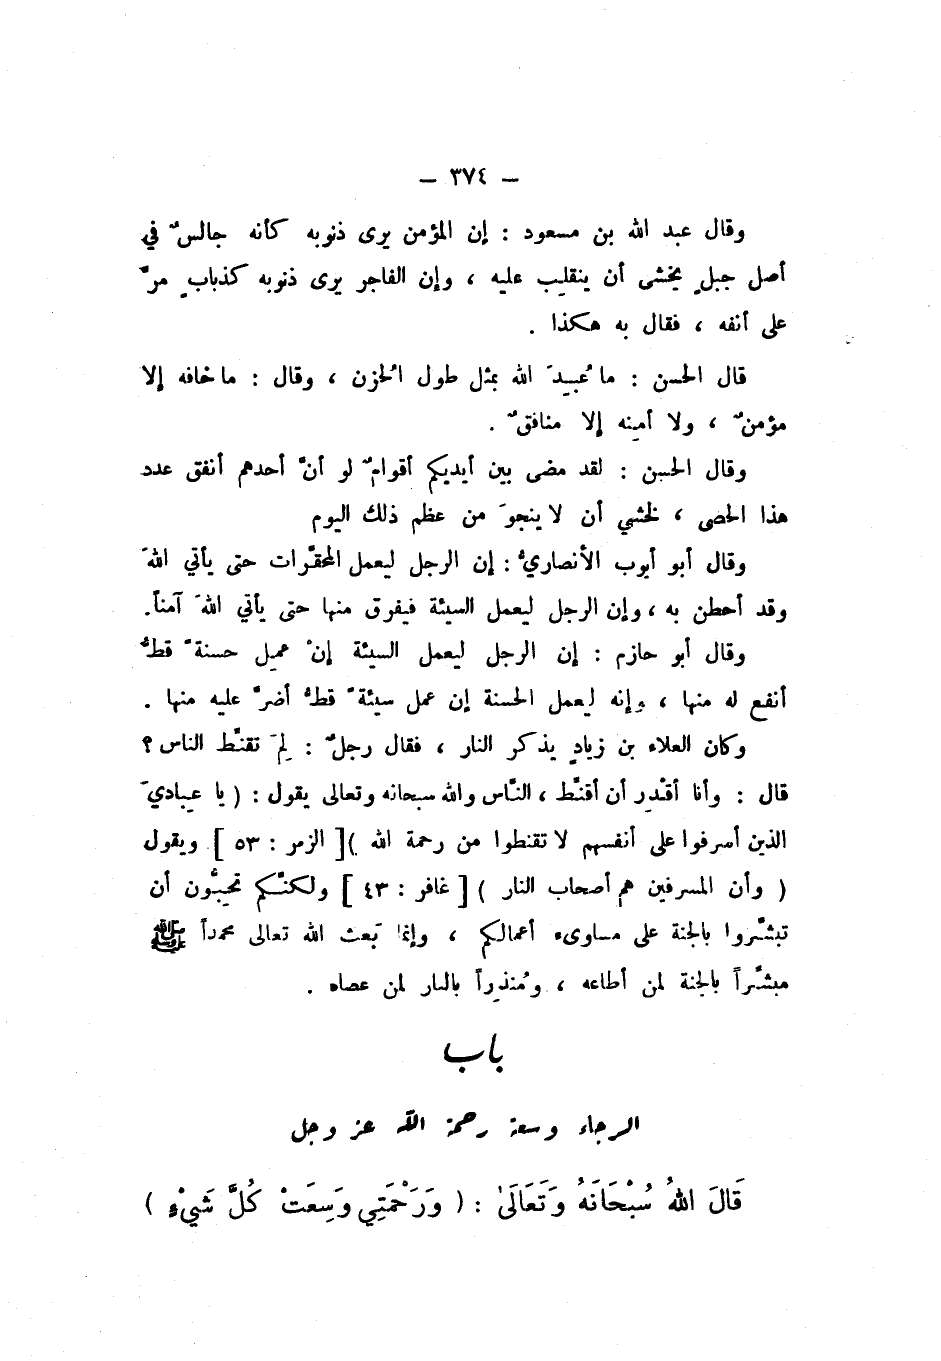 — ٣٧٤ —
وقال عبد الله بن مسعود : إن المؤمن يرى ذنوبه كأنه جالسٌ في
أصل جبلٍ يخشى أن ينقلِب عليه ، وإن الفاجر يرى ذنوبه كذبابٍ مرَّ
على أنفه ، فقال به هكذا .
قال الحسن : ما عُبِدَ الله بمثل طول الحُزن ، وقال : ما خافه إلا
مؤمنٌ ، ولا أمِنه إلا منافقٌ .
وقال الحسن : لقد مضى بين أيديكم أقوامٌ لو أنَّ أحدهم أنفق عدد
هذا الحصى ، لخشي أن لا ينجوَ من عظم ذلك اليوم
وقال أبو أيوب الأنصاريُّ : إن الرجل ليعمل المحقَّرات حتى يأتي اللهَ
وقد أحطن به ، وإن الرجل ليعمل السيئة فيفرق منها حتى يأتي اللهَ آمناً .
وقال أبو حازم : إن الرجل ليعمل السيئة إنْ عمِل حسنةً قطُّ
أنفع له منها ، وإنه ليعمل الحسنة إن عمل سيئةً قطُّ أضرَّ عليه منها .
وكان العلاء بن زيادٍ يذكر النار ، فقال رجلٌ : لِمَ تقنِّط الناس ؟
قال : وأنا أقْدِر أن أقنِّط ، النَّاس والله سبحانه وتعالى يقول : ( يا عِباديَ
الذين أسرفوا على أنفسهم لا تقنطوا من رحمة الله ) [ الزمر : ٥٣ ] ويقول
( وأن المسرفين هم أصحاب النار ) [ غافر : ٤٣ ] ولكنَّكم تحبُّون أن
تبشَّروا بالجنة على مساوىء أعمالكم ، وإنما بَعث الله تعالى محمداً ﷺ
مبشِّراً بالجنة لمن أطاعه ، ومُنذِراً بالنار لمن عصاه .
باب
الرجاء وسعة رحمة الله عز وجل
قَالَ اللهُ سُبْحَانَهُ وَتَعَالَىٰ : ( وَرَحْمَتِي وَسِعَتْ كُلَّ شَيْءٍ )